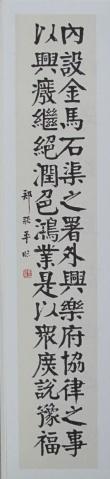 內設金馬石渠之署外興樂府協律之事
以興廢繼絕潤色鴻業是以眾庶說豫福